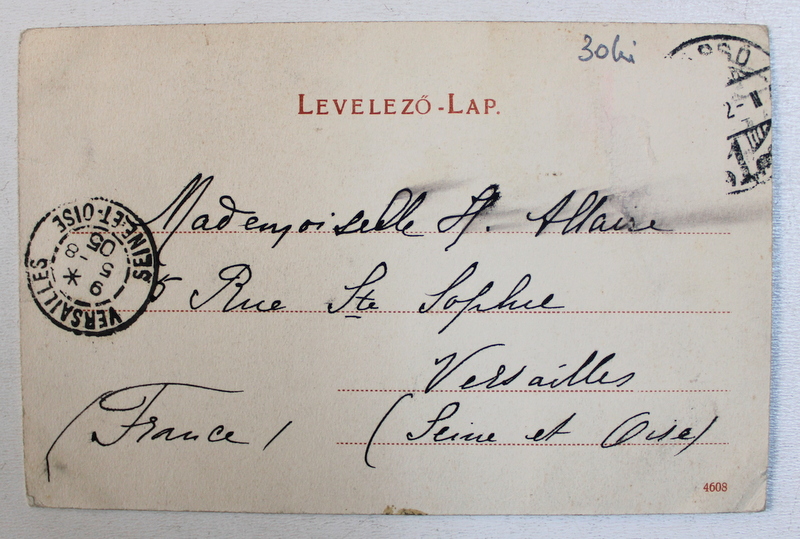 30 lei
LEVELEZŐ-LAP.
Mademoiselle H. Allaire
5 Rue Ste Sophie
Versailles
(France)
(Seine et Oise)
VERSAILLES
SEINE-ET-OISE
9 *
5 -8
05
4608